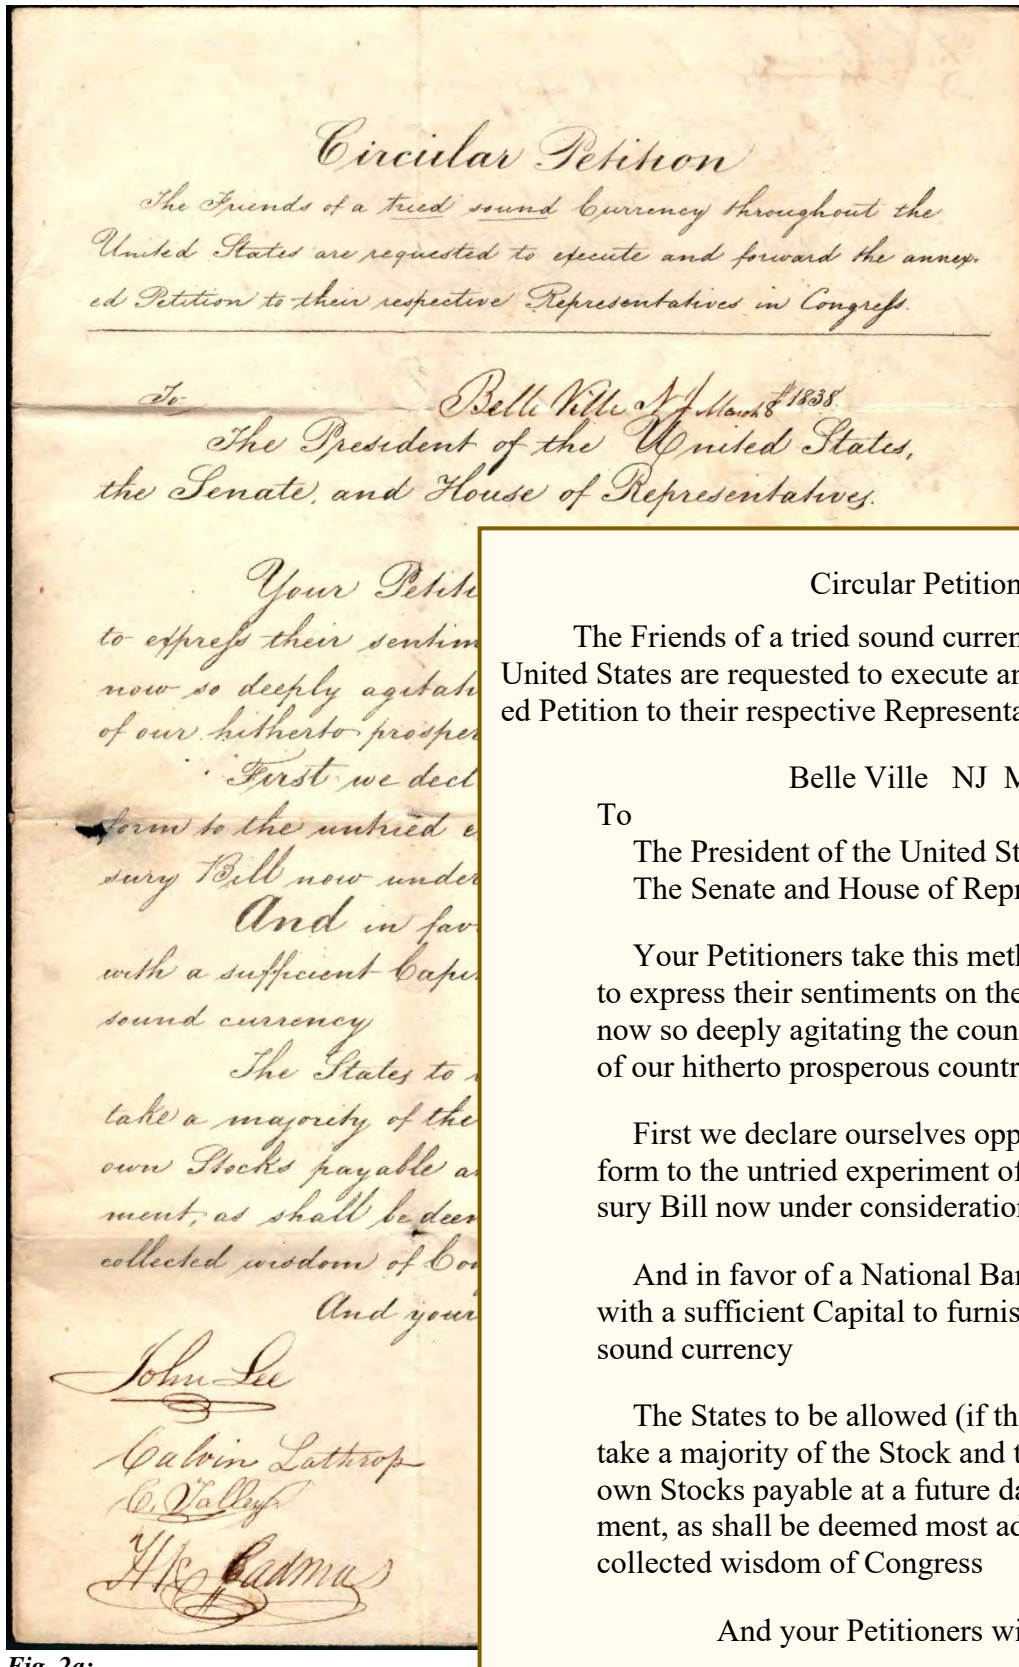 Circular Petition
The Friends of a tried sound Currency throughout the
United States are requested to execute and forward the annex-
ed Petition to their respective Representatives in Congress.
To
Belle Ville NJ March 8th 1838
The President of the United States,
the Senate, and House of Representatives.
Your Petiti
to express their sentim
now so deeply agitati
of our hitherto prosper
First we decl
form to the untried e
sury Bill now under
And in fav
with a sufficient Capi
sound currency
The States to
take a majority of the
own Stocks payable a
ment, as shall be deem
collected wisdom of Con
And your
John Lee
Calvin Lathrop
C. Talley
H K Cadmus
Circular Petition
The Friends of a tried sound curren
United States are requested to execute an
ed Petition to their respective Representa
Belle Ville NJ M
To
The President of the United St
The Senate and House of Repr
Your Petitioners take this meth
to express their sentiments on the
now so deeply agitating the coun
of our hitherto prosperous countr
First we declare ourselves opp
form to the untried experiment of
sury Bill now under consideration
And in favor of a National Ban
with a sufficient Capital to furnis
sound currency
The States to be allowed (if th
take a majority of the Stock and t
own Stocks payable at a future da
ment, as shall be deemed most ad
collected wisdom of Congress
And your Petitioners wi
Fig. 2a: